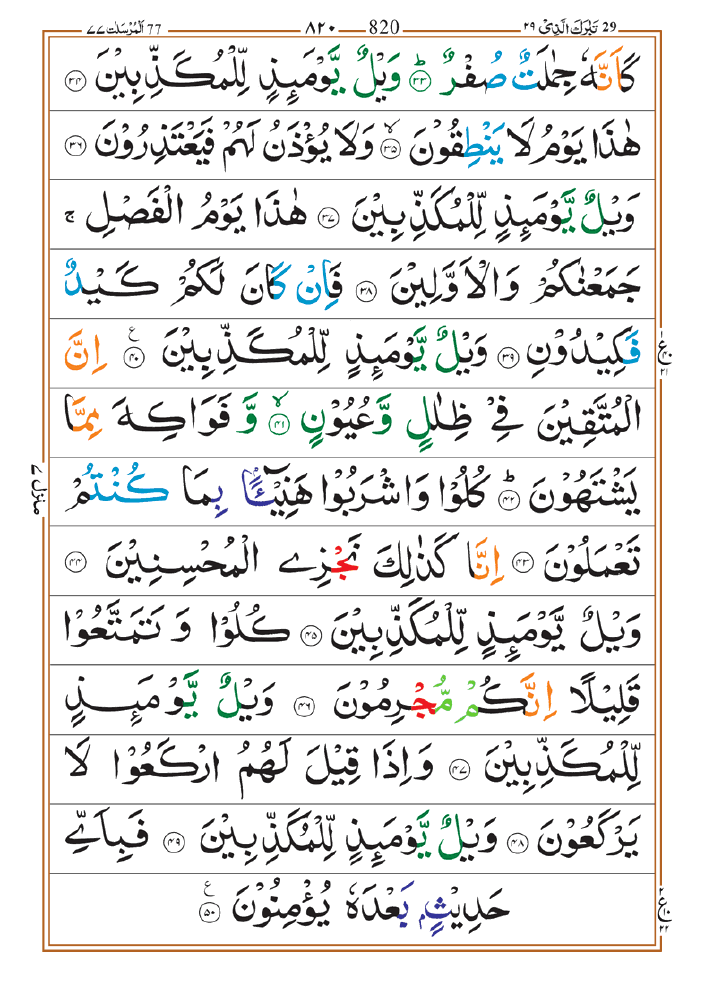 29 تَبٰرَكَ الَّذِيْ ٢٩ — 820 — ٨٢٠ — 77 اَلْمُرْسَلٰت ٧٧
كَاَنَّهٗ جِمٰلَتٌ صُفْرٌ ؕ ﴿۳۳﴾ وَيْلٌ يَّوْمَىِٕذٍ لِّلْمُكَذِّبِيْنَ ﴿۳۴﴾
هٰذَا يَوْمُ لَا يَنْطِقُوْنَ ۙ ﴿۳۵﴾ وَلَا يُؤْذَنُ لَهُمْ فَيَعْتَذِرُوْنَ ﴿۳۶﴾
وَيْلٌ يَّوْمَىِٕذٍ لِّلْمُكَذِّبِيْنَ ﴿۳۷﴾ هٰذَا يَوْمُ الْفَصْلِ ۚ
جَمَعْنٰكُمْ وَالْاَوَّلِيْنَ ﴿۳۸﴾ فَاِنْ كَانَ لَكُمْ كَيْدٌ
فَكِيْدُوْنِ ﴿۳۹﴾ وَيْلٌ يَّوْمَىِٕذٍ لِّلْمُكَذِّبِيْنَ ﴿۴۰﴾ ع اِنَّ
الْمُتَّقِيْنَ فِيْ ظِلٰلٍ وَّعُيُوْنٍ ۙ ﴿۴۱﴾ وَّ فَوَاكِهَ مِمَّا
يَشْتَهُوْنَ ؕ ﴿۴۲﴾ كُلُوْا وَاشْرَبُوْا هَنِيْٓـًٔۢا بِمَا كُنْتُمْ
تَعْمَلُوْنَ ﴿۴۳﴾ اِنَّا كَذٰلِكَ نَجْزِے الْمُحْسِنِيْنَ ﴿۴۴﴾
وَيْلٌ يَّوْمَىِٕذٍ لِّلْمُكَذِّبِيْنَ ﴿۴۵﴾ كُلُوْا وَ تَمَتَّعُوْا
قَلِيْلًا اِنَّكُمْ مُّجْرِمُوْنَ ﴿۴۶﴾ وَيْلٌ يَّوْمَىِٕذٍ
لِّلْمُكَذِّبِيْنَ ﴿۴۷﴾ وَاِذَا قِيْلَ لَهُمُ ارْكَعُوْا لَا
يَرْكَعُوْنَ ﴿۴۸﴾ وَيْلٌ يَّوْمَىِٕذٍ لِّلْمُكَذِّبِيْنَ ﴿۴۹﴾ فَبِاَىِّ
حَدِيْثٍۭ بَعْدَهٗ يُؤْمِنُوْنَ ﴿۵۰﴾ ع
منزل ۷